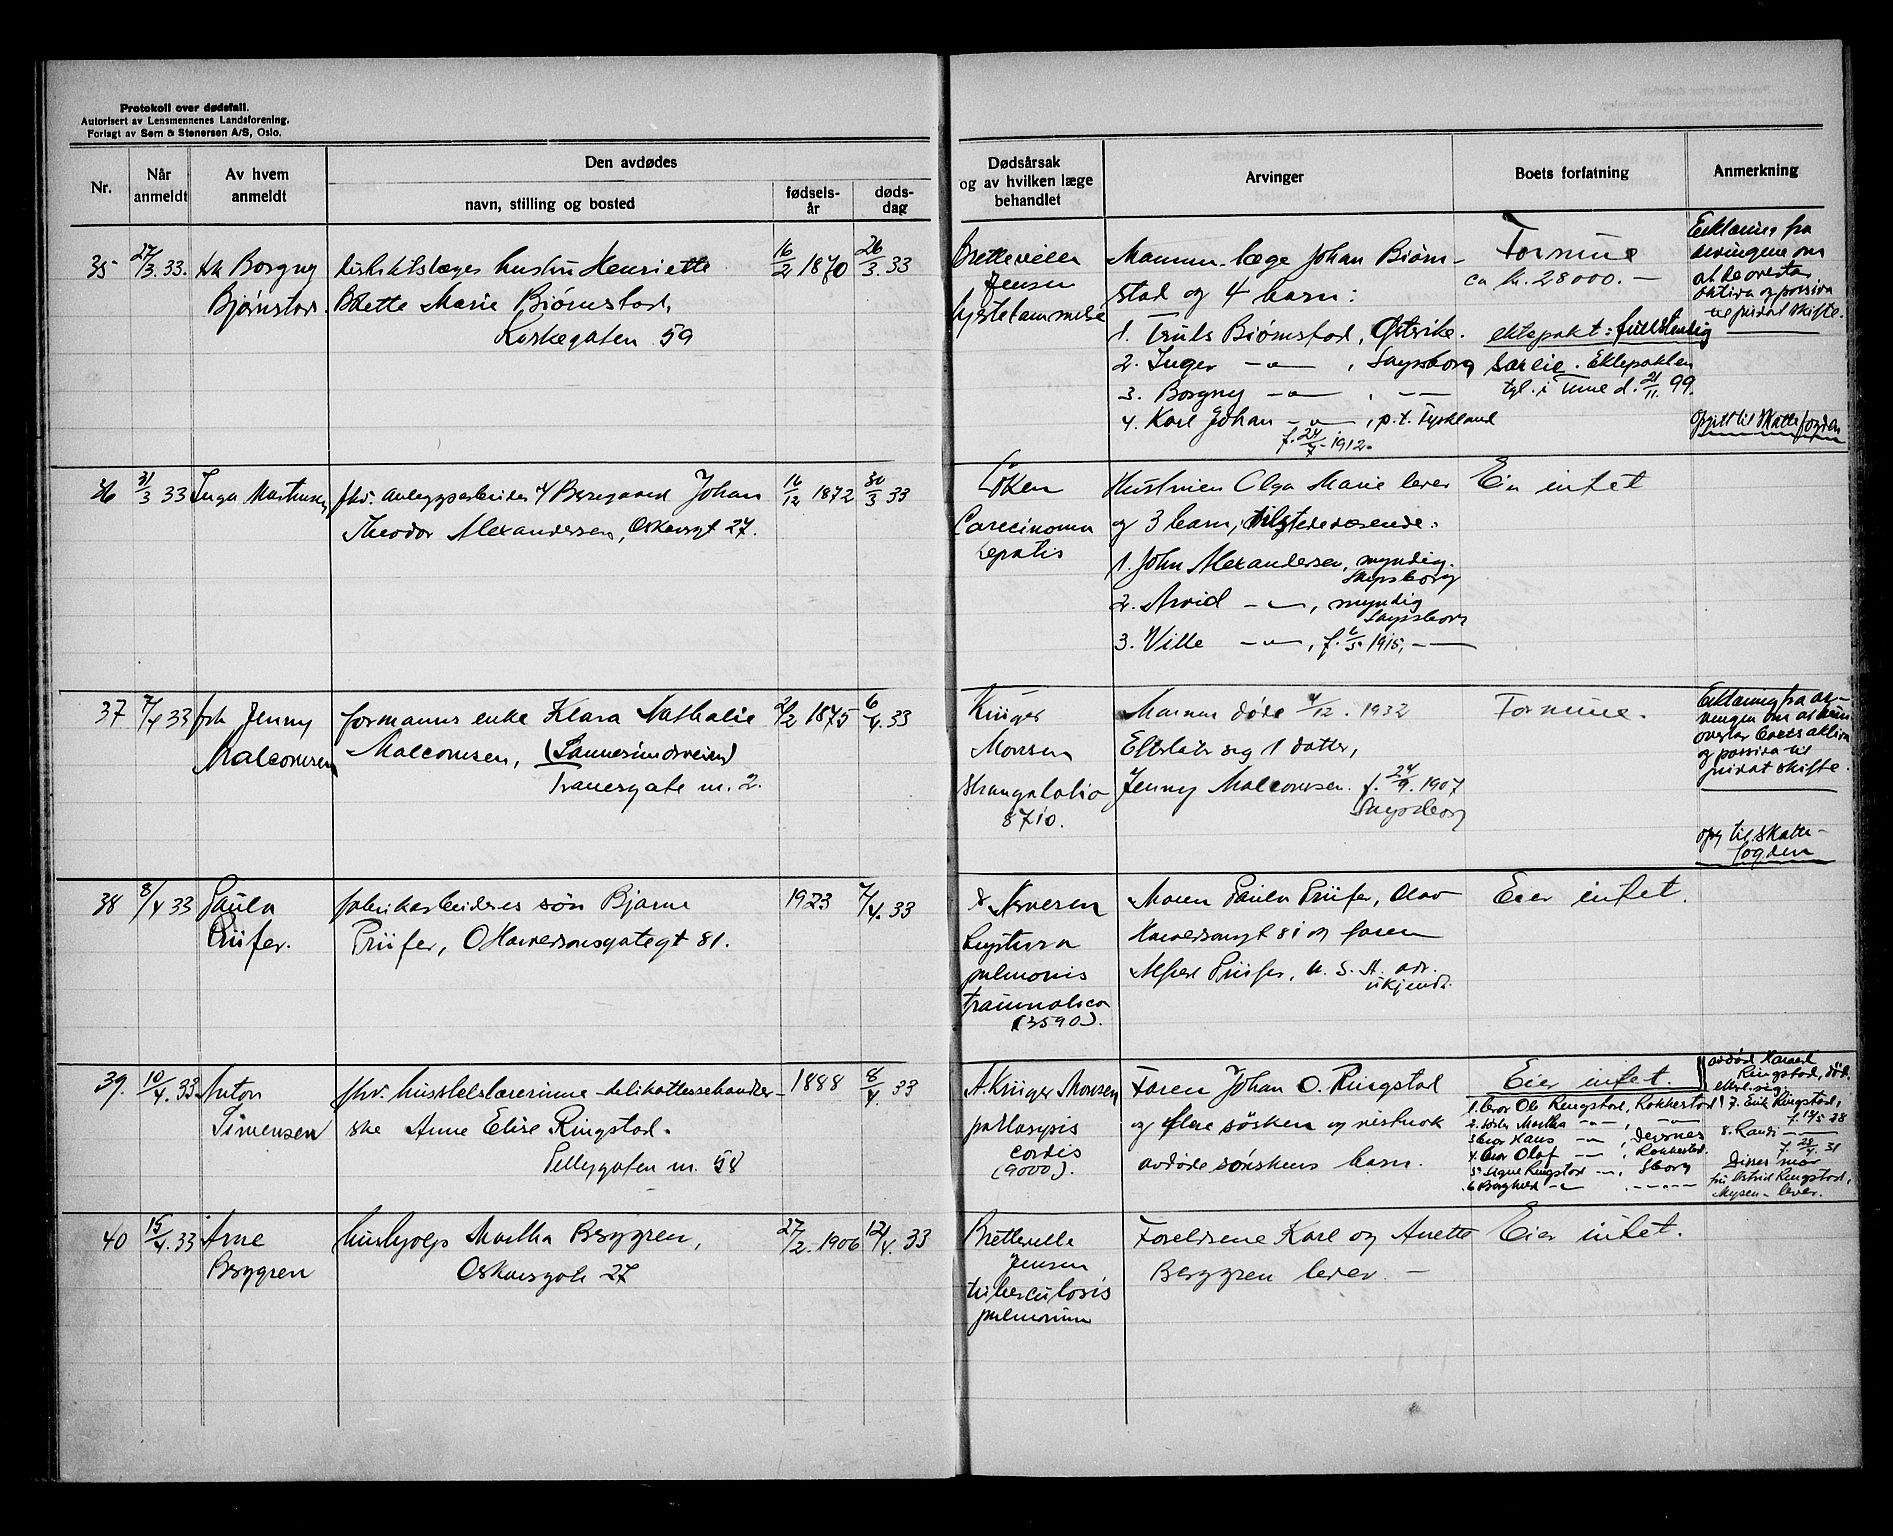 Protokoll over dødsfall.
Autorisert av Lensmennenes Landsforening.
Forlagt av Sem & Stenersen A/S, Oslo.
Nr.
Når anmeldt
Av hvem anmeldt
Den avdødes
navn, stilling og bosted
fødsels-år
døds-dag
Dødsårsak
og av hvilken læge
behandlet
Arvinger
Boets forfatning
Anmerkning
35 27/3. 33. frk Borgny distriktslæges hustru Henriette 16/2 1870 26/3 33
Bjørnstad. Bolette Marie Bjørnstad,
Kirkegaten 59
Bretteville
Jensen
hjertelammelse
Mannen læge Johan Bjørn-
stad og 4 barn:
1. Truls Bjørnstad, Østerike.
2. Inger —"— , Sarpsborg
3. Borgny —"— , ——
4. Karl Johan —"— , p.t. Tyskland
f. 24/7 1912.
Formue
ca kr. 28000.—
ektepakt: fullstendig
særeie. Ektepakten
tgl. i Tune d. 21/11 99.
Erklæring fra
arvingene om
at de overtar
aktiva og passiva
til privat skifte.
opg. til skattefogden
36 31/3 33 Inga Martinsen fhv. anleggsarbeider Johan 16/12 1872 30/3 33
Theodor Alexandersen, Oskarsgt 27.
Løken
Carcinoma
hepatis
Hustruen Olga Marie lever
og 3 barn, tilstedeværende:
1. John Alexandersen, myndig.
Sarpsborg
2. Arvid —"— , myndig
Sarpsborg
3. Ville —"— , f. 6/5 1915, ——
Eier intet
37 7/4 33 frk Jenny formanns enke Klara Nathalie 2/2 1875 6/4 33
Malcomsen Malcomsen, (Sannesundsveien)
Tranesgate nr. 2.
Krüger
Monsen
Strangulatio
8710.
Mannen døde 4/12. 1932
Efterlater sig 1 datter,
Jenny Malcomsen. f. 24/9. 1907
Sarpsborg
Formue.
Erklæring fra ar-
vingen om at hun
overtar boets aktiva
og passiva til
privat skifte.
opg til skatte-
fogden
38 8/4 33 Paula fabrikkarbeideres søn Bjarne 1923 7/4. 33
Prüfer. Prüfer, O Haraldsonsgategt 81.
d Arnesen
Ruptura
pulmonis
traumatica
(3590).
Moren Paula Prüfer, Olav
Haraldsonsgt 81 og faren
Alfred Prüfer, U. S. A. adr.
ukjendt.
Eier intet.
39. 10/4. 33 Anton fhv. husstelslærerinne - delikattessehandler- 1888 8/4. 33
Simensen ske Anne Elise Ringstad.
Pellygaten nr. 58
A. Krüger Monsen
paralysis
cordis
(9000).
Faren Johan O. Ringstad
og flere søsken og visstnok
avdøde søskens barn.
Eier intet.
1. bror Ole Ringstad, Rakkestad
2. søster Martha —"— , —"—
3 bror Hans —"— , Degernes
4. bror Olaf —"— , Rakkestad.
5. Signe Ringstad —"— , Sborg
6 Borghild —"— , —"—
avdød Harald
Ringstad, død.
efterl. sig.
7. Erik Ringstad,
f. 12/5 28
8. Randi ——
f. 28/4. 31
Disses mor
fru Astrid Ringstad,
Mysen - lever.
40 15/4. 33 Arne hushjelp Martha Berggren, 27/2. 1906 12/4. 33
Berggren Oskarsgate 27
Bretteville
Jensen
tuberculosis
pulmonum
Foreldrene Karl og Anette
Berggren lever. —
Eier intet.